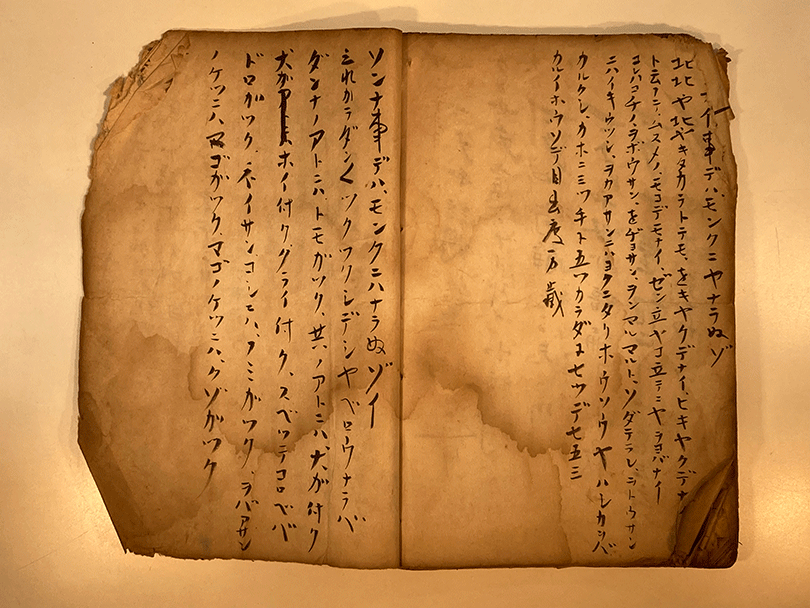 イ事デハ、モンクニヤナラぬゾ
北北や北べキタカラトテモ、をキヤクデナイ、ヒキヤクデナ
トナアテ、ムスメノ、モコデモナイ、ゼン立ヤコ立テニヤラヨバナイ
コハコチノ、ヲボウサン、をゲヨサン、ヲンマルマルト、ソダテラレ、ヲトウサン
ニハイキウツシ、ヲカアサンニハヨクニタリホウソウヤ、ハレカシバ
カルクシ、カホニミツ手ト五ツカラダヱセツデ七五三
カルイホウソデ目出度万歳
ソンナ事デハ、モンクニハナラぬゾイ
それカラダン〱ツクツクシデシヤベロウナラバ
ダンナノアトニハ、トモガツク、共ノアトニハ犬が付ク
犬がホイ付ク、クライ付ク、スベツテコロベバ
ドロガツク、ネイサン、コシニハ、ノミガツク、ヲバアサン
ノケツニハ、マゴがツク、マゴノケツニハ、クソがツク